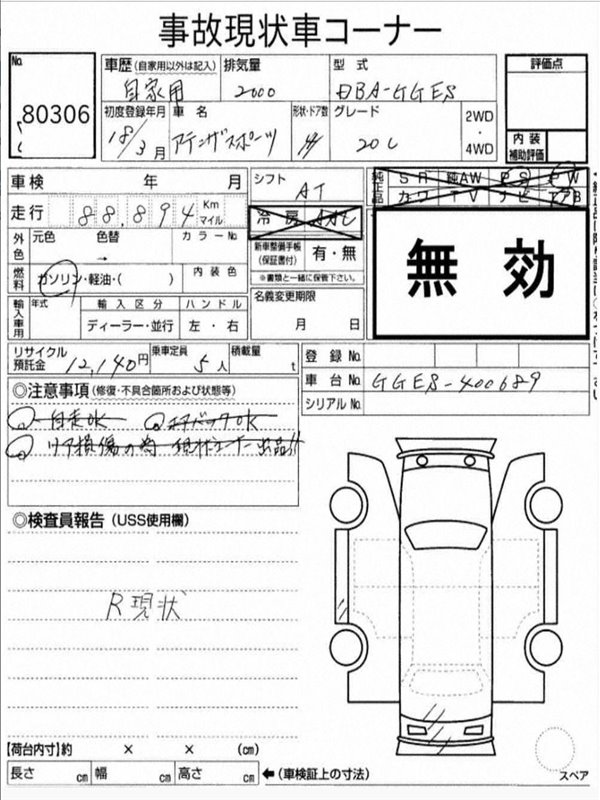 事故現状車コーナー
No. 80306
車歴 (自家用以外は記入) 自家用
排気量 2000
型式 DBA-GGES
評価点
初度登録年月 18/3月
車名 アテンザスポーツ
形状・ドア数
グレード 20C
2WD・4WD
内装補助評価
車検 年 月
シフト AT
純正品 SR 純AW PS PW
カワ TV ナビ エアB
走行 88,894 Km マイル
冷房 AAC
外色 元色 色替 → カラーNo.
新車整備手帳(保証書付) 有・無
※書類と一緒に保管下さい。
無効
燃料 ガソリン・軽油・( ) 内装色
名義変更期限 月 日
輸入車用 年式 輸入区分 ハンドル
ディーラー・並行 左・右
リサイクル預託金 12,140円 乗車定員 5人 積載量 t
登録No.
車台No. GGES-400689
シリアルNo.
◎注意事項(修復・不具合箇所および状態等)
自走OK エアバックOK
リア損傷の為 現状コーナー出品!!
◎検査員報告(USS使用欄)
R現状
【荷台内寸】約 × × (cm)
長さ cm 幅 cm 高さ cm ←(車検証上の寸法)
スペア